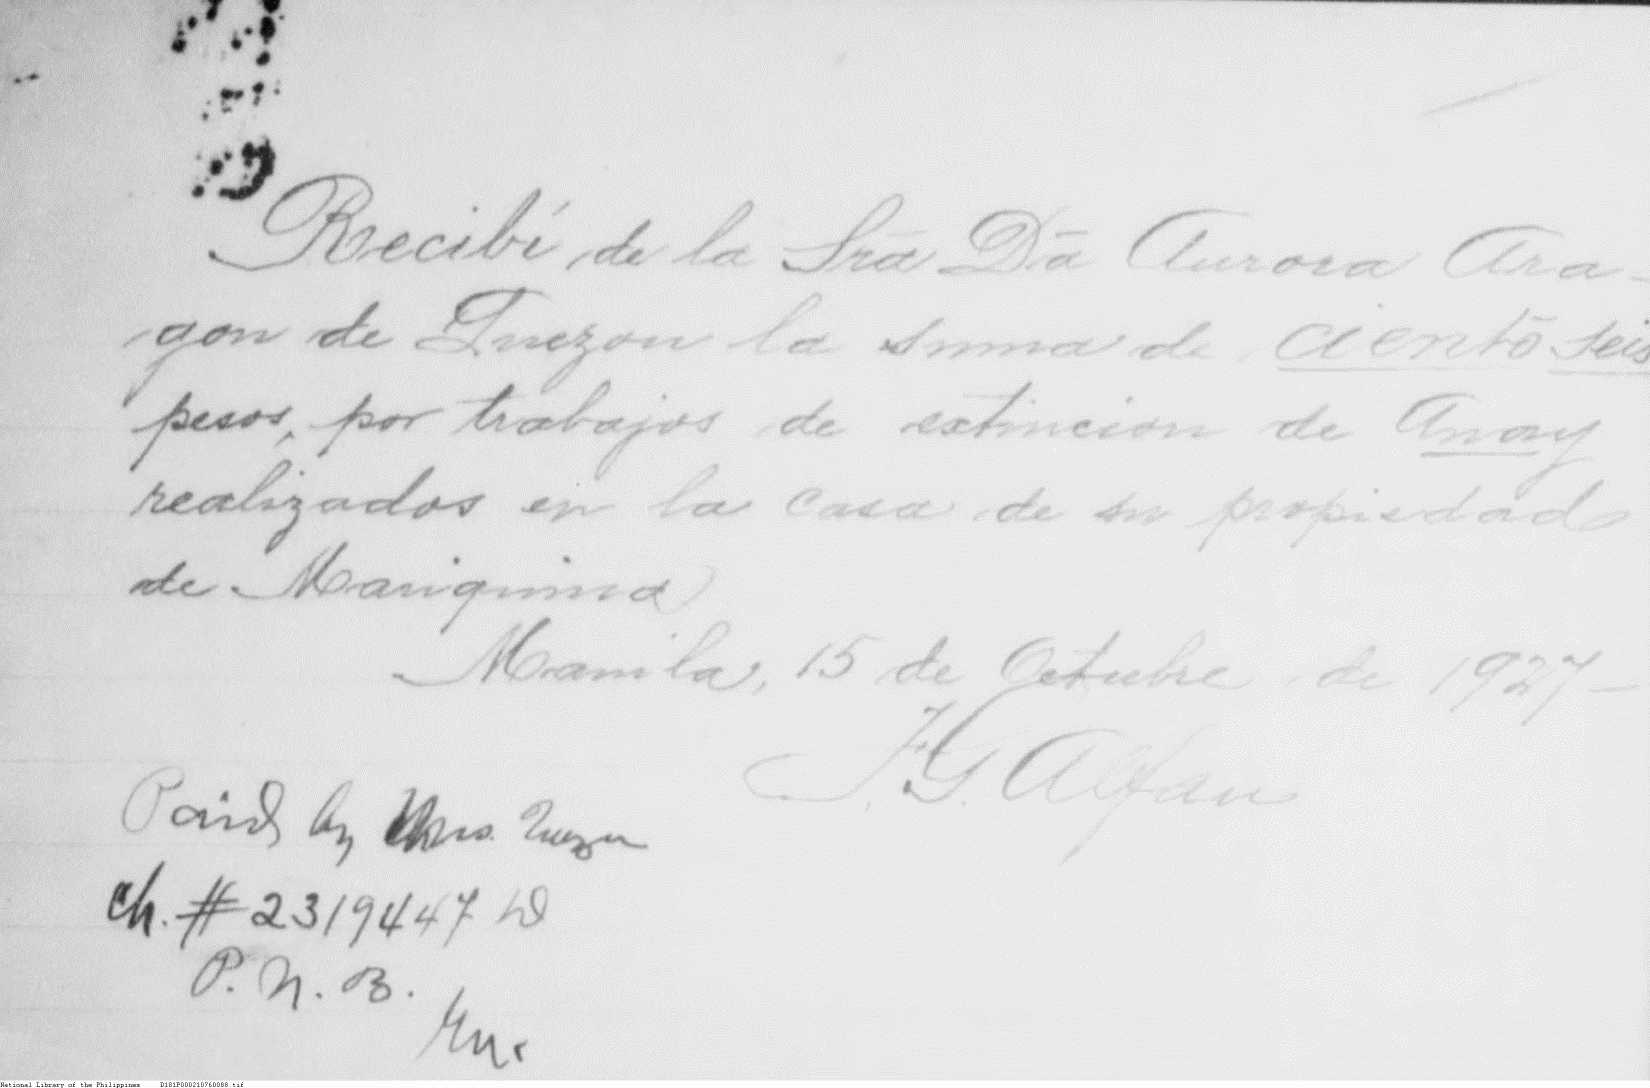 Recibí de la Sra Da Aurora Ara-
gon de Quezon la suma de ciento seis
pesos, por trabajos de extincion de Anay
realizados en la casa de su propiedad
de Mariquina
Manila, 15 de Octubre de 1927-
J. G. Alfau
Paid by Mrs. Quezon
ch. # 2319447 D
P. N. B.
National Library of the Philippines D101P000210760088.tif